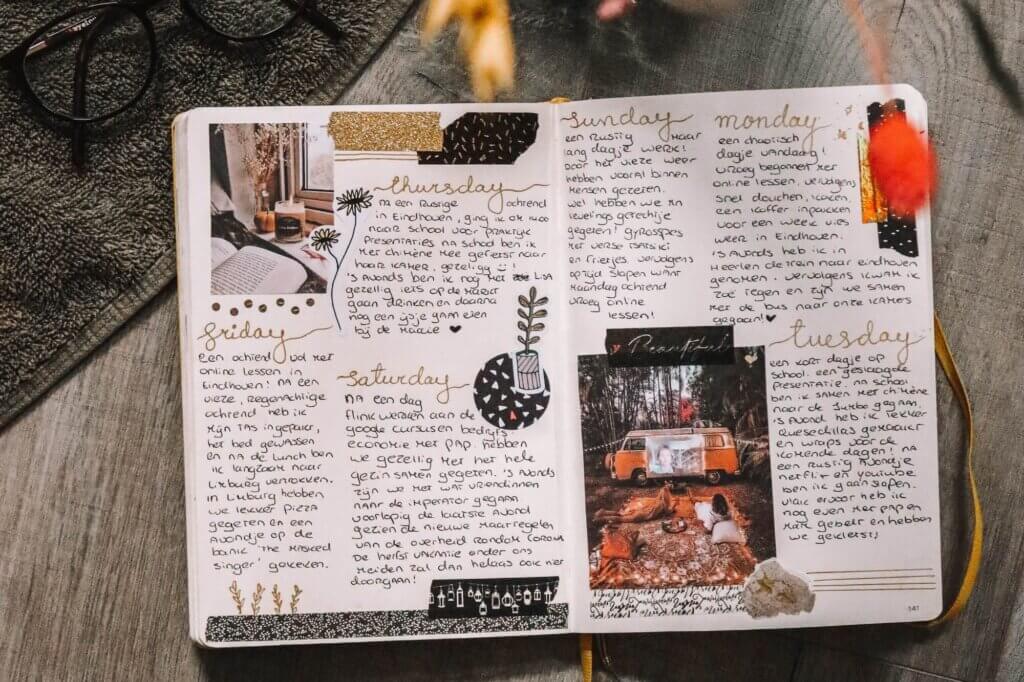 thursday
na een rustige ochrend
in Eindhoven, ging ik om
naar school voor praktijk
presentaties na school ben ik
met chimène mee gefietst naar
haar kamer, gezellig !
's avonds ben ik nog met Lisa
gezellig iets op de markt
gaan drinken en daarna
nog een ijsje gaan eten
bij de
friday
een ochtend vol met
online lessen in
Eindhoven! na een
vieze, regenachtige
ochtend heb ik
mijn tas ingepakt,
het bed gewassen
en na de lunch ben
ik langzaam naar
Limburg vertrokken.
in Limburg hebben
we lekker pizza
gegeten en een
avondje op de
bank 'the masked
singer' gekeken.
saturday
na een dag
flink werken aan de
google cursus en bedrijfs
economie met pap, hebben
we gezellig met het hele
gezin samen gegeten. 's avonds
zijn we met wat vriendinnen
naar de imperator gegaan
voorlopig de laatste avond
gezien de nieuwe maatregelen
van de overheid rondom corona
De herfst vakantie onder ons
meiden zal dan helaas ook niet
doorgaan!
sunday
een rustig maar
lang dagje werk!
door het vieze weer
hebben vooral binnen
mensen gezeten.
wel hebben we mn
lievelings gerechtje
gegeten! gyrosspies
met verse tsatsiki
en frietjes. vervolgens
optijd slapen want
maandag ochtend
vroeg online
lessen!
monday
een chaotisch
dagje vandaag!
vroeg begonnen met
online lessen, vervolgens
snel douchen, koken,
een koffer inpakken
voor een week vies
weer in Eindhoven.
's avonds heb ik in
Heerlen de trein naar eindhoven
genomen. vervolgens kwam ik
zoë tegen en zijn we samen
met de bus naar onze kamers
gegaan!
Beautiful
tuesday
een kort dagje op
school. een geslaagde
presentatie. na school
ben ik samen met chimène
naar de jumbo gegaan.
's avond heb ik lekker
quesedillas gemaakt
en wraps voor de
komende dagen! na
een rustig avondje
netflix en youtube
ben ik gaan slapen.
vlak ervoor heb ik
nog even met pap en
mam gebeld en hebben
we gekletst!
141